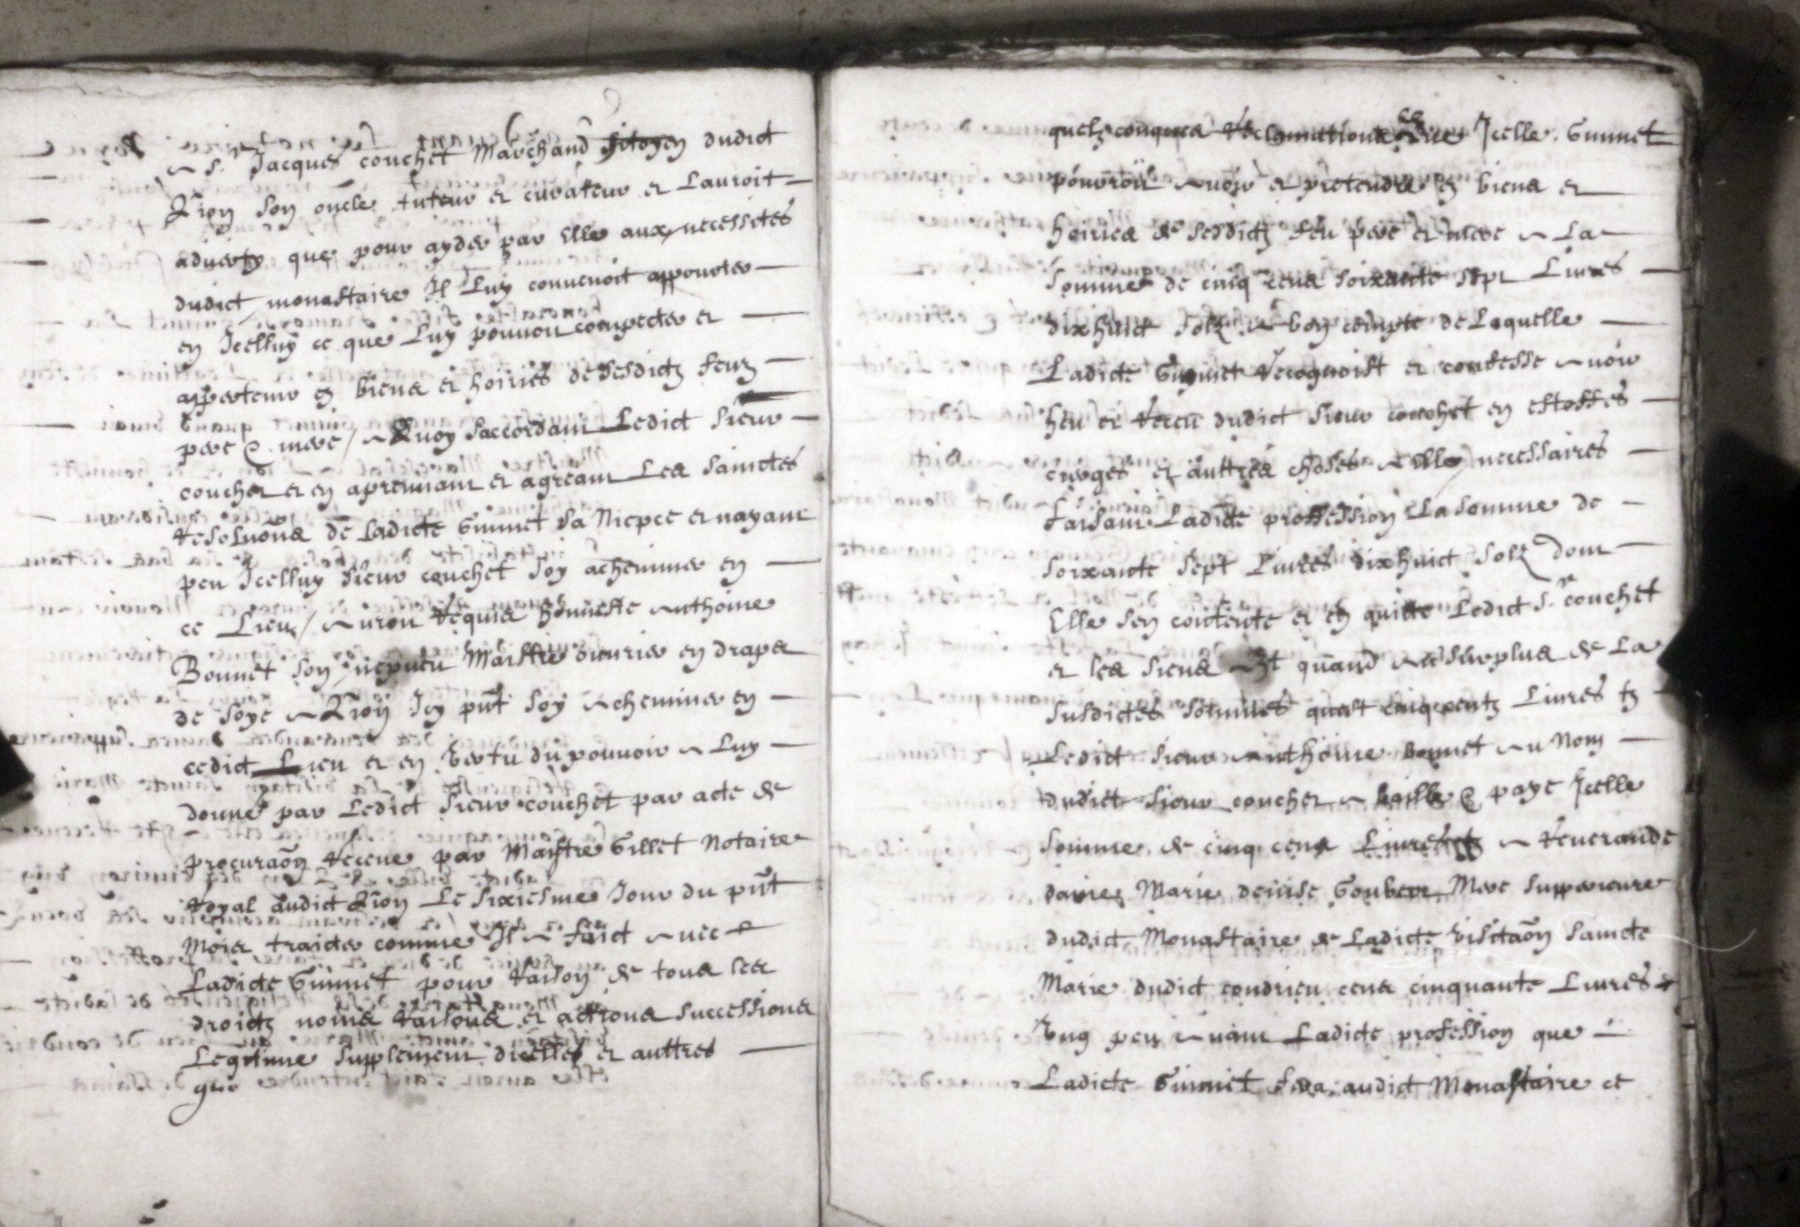 A Sr Jacques couchet Marchand citoyen dudict
Lion son oncle tuteur et curateur et Lauroit
adverty que pour ayder par Elle aux necessites
dudict monastaire Il Luy convenoit apporter
en Icelluy ce que Luy pouvoit compecter et
appertenir en biens et hoiries de sesdictz feuz
pere & mere / A Quoy saccordant Ledict sieur
couchet et en aprenant et agreant Les sainctes
resoluōns de Ladicte Guinet sa Niepce et nayant
peu Icelluy sieur couchet soy acheminer en
ce Lieu / Auroit requis honneste Anthoine
Bonnet son nepveu Maistre ouvrier en draps
de soye A Lion Icy pn̄t soy acheminer en
cedict Lieu et en vertu du pouvoir A Luy
donné par Ledict sieur couchet par acte de
procuraōn receue par Maistre Gillet Notaire
Royal audict Lion Le sixiesme Jour du pn̄t
Mois traicter comme Il A faict avec
Ladicte Guinet pour raison de tous les
droictz noms raisons et actions successions
Legitime supplement dicelles et auttres
que
quelzconques reclamations que Icelle Guinet
pourroit avoir et pretendre en biens et
hoiries de sesdictz feu pere et mere A La
somme de cinq cens soixante sept Livres
dixhuict solz A bon compte de Laquelle
Ladicte Guinet recognoist et confesse avoir
heu et receu dudict sieur couchet en estoffes
cierges et auttres choses A Elle necessaires
faisant Ladicte proffession La somme de
soixante sept Livres dixhuict solz dont
Elle sen contente et en quitte Ledict Sr couchet
et les siens Et quand au surplus de La
susdictes sommes quest cinq centz Livres tz
Ledict sieur Anthoine Bonnet au Nom
dudict sieur couchet A baille & paye Icelle
somme de cinq cens Livres A Reverande
dame Marie denise Goubert Mere supperieure
dudict Monastaire de Ladicte visitaōn saincte
Marie dudict condrieu cens cinquante Livres
Ung peu avant Ladicte profession que
Ladicte Guinet fera audict Monastaire et